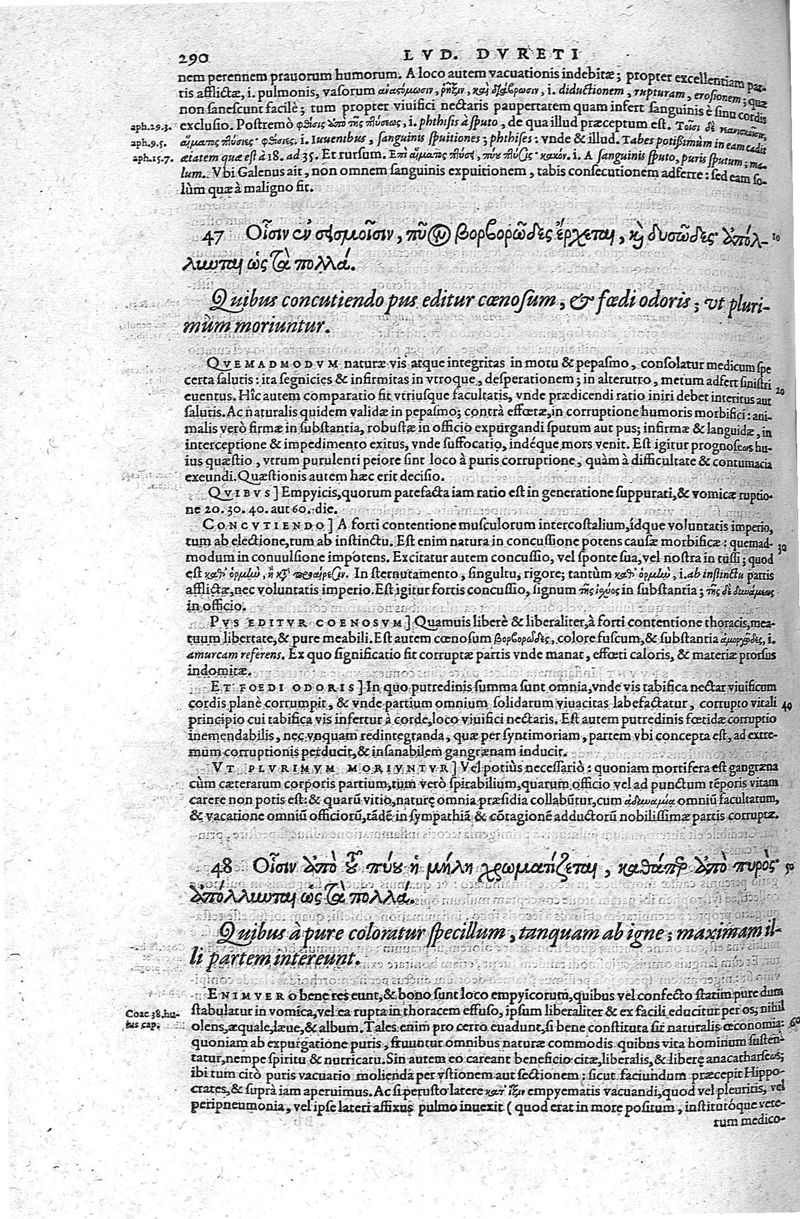 290 LVD. DVRETI
nem perennem prauorum humorum. A loco autem vacuationis indebitæ; propter excellentiam par-
tis afflictæ, i. pulmonis, vasorum ἀναστόμωσιν, ῥῆξιν, καὶ διάβρωσιν, i. diductionem, rupturam, erosionem; quæ
non sanescunt facilè; tum propter viuifici nectaris paupertatem quam infert sanguinis è sinu cordis
aph.29.3. exclusio. Postremò φθίσις ἀπὸ τῆς πτύσιος, i. phthisis à sputo, de qua illud præceptum est. Τοῖσι δὲ νεανίσκοισιν,
aph.9.5. αἵματος πτύσιες· φθίσιες. i. Iuuenibus, sanguinis spuitiones; phthises: vnde & illud. Tabes potißimùm in eam cadit
aph.15.7. ætatem quæ est à 18. ad 35. Et rursum. Ἐπὶ αἵματος πτύσει, πύου πτύσις· κακόν. i. A sanguinis sputo, puris sputum; ma-
lum. Vbi Galenus ait, non omnem sanguinis expuitionem, tabis consecutionem adferre: sed eam so-
lùm quæ à maligno fit.
47 Οἷσιν ἐν σεισμοῖσιν, πῦον βορβορῶδες ἔρχεται, καὶ δυσῶδες· ἀπόλ- 10
λυνται ὡς τὰ πολλά.
Quibus concutiendo pus editur cœnosum, & fœdi odoris; vt pluri-
mùm moriuntur.
QVEMADMODVM naturæ vis atque integritas in motu & pepasmo, consolatur medicum spe
certa salutis: ita segnicies & infirmitas in vtroque, desperationem; in alterutro, metum adfert sinistri
euentus. Hîc autem comparatio fit vtriusque facultatis, vnde prædicendi ratio iniri debet interitus aut 20
salutis. Ac naturalis quidem validæ in pepasmo; contrà effœtæ, in corruptione humoris morbifici: ani-
malis verò firmæ in substantia, robustæ in officio expurgandi sputum aut pus; infirmæ & languidæ, in
interceptione & impedimento exitus, vnde suffocatio, indéque mors venit. Est igitur prognoseως hu-
ius quæstio, vtrum purulenti peiore sint loco à puris corruptione, quàm à difficultate & contumacia
exeundi. Quæstionis autem hæc erit decisio.
QVIBVS] Empyicis, quorum patefacta iam ratio est in generatione suppurati, & vomicæ ruptio-
ne 20. 30. 40. aut 60. die.
CONCVTIENDO] A forti contentione musculorum intercostalium, idque voluntatis imperio,
tum ab electione, tum ab instinctu. Est enim natura in concussione potens causæ morbificæ: quemad- 30
modum in conuulsione impotens. Excitatur autem concussio, vel sponte sua, vel nostra in tussi; quod
est κατ' ὁρμὴν, ἢ κατὰ προαίρεσιν. In sternutamento, singultu, rigore; tantùm κατ' ὁρμὴν, i. ab instinctu partis
afflictæ, nec voluntatis imperio. Est igitur fortis concussio, signum τῆς ἰσχύος in substantia; τῆς δὲ δυνάμεως
in officio.
PVS EDITVR COENOSVM] Quamuis liberè & liberaliter, à forti contentione thoracis, mea-
tuum libertate, & pure meabili. Est autem cœnosum βορβορῶδες, colore fuscum, & substantia ἀμοργῶδες, i.
amurcam referens. Ex quo significatio fit corruptæ partis vnde manat, effœti caloris, & materiæ prorsus
indomitæ.
ET FOEDI ODORIS] In quo putredinis summa sunt omnia, vnde vis tabifica nectar viuificum
cordis planè corrumpit, & vnde partium omnium solidarum viuacitas labefactatur, corrupto vitali 40
principio cui tabifica vis infertur à corde, loco viuifici nectaris. Est autem putredinis fœtidæ corruptio
inemendabilis, nec vnquam redintegranda, quæ per syntimoriam, partem vbi concepta est, ad extre-
mum corruptionis perducit, & insanabilem gangrænam inducit.
VT PLVRIMVM MORIVNTVR] Vel potiùs necessariò: quoniam mortifera est gangræna
cùm cæterarum corporis partium, tum verò spirabilium, quarum officio vel ad punctum tēporis vitam
carere non potis est: & quarū vitio, naturę omnia præsidia collabūtur, cum ἀδυναμία omniū facultatum,
& vacatione omniū officiorū, tādē in sympathiā & cōtagionē adductorū nobilissimæ partis corruptæ.
48 Οἷσιν ἀπὸ τοῦ πύου ἡ μήλη χρωματίζεται, καθάπερ ἀπὸ πυρός· 50
ἀπόλλυνται ὡς τὰ πολλά.
Quibus à pure coloratur specillum, tanquam ab igne; maximam il-
li partem intereunt.
ENIMVERO bene res eunt, & bono sunt loco empyicorum, quibus vel confecto statim pure dum
Coac 38.hu- stabulatur in vomica, vel ea rupta in thoracem effuso, ipsum liberaliter & ex facili educitur per os; nihil
ius cap. olens, æquale, læue, & album. Tales enim pro certo euadunt, si bene constituta sit naturalis œconomia: 60
quoniam ab expurgatione puris, fruuntur omnibus naturæ commodis quibus vita hominum susten-
tatur, nempe spiritu & nutricatu. Sin autem eo careant beneficio citæ, liberalis, & liberę anacatharseως;
ibi tum citò puris vacuatio molienda per vstionem aut sectionem: sicut faciundum præcepit Hippo-
crates, & suprà iam aperuimus. Ac si perusto latere κατ' ἴξιν empyematis vacuandi, quod vel pleuritis, vel
peripneumonia, vel ipse lateri affixus pulmo inuexit (quod erat in more positum, institutóque vete-
rum medico-